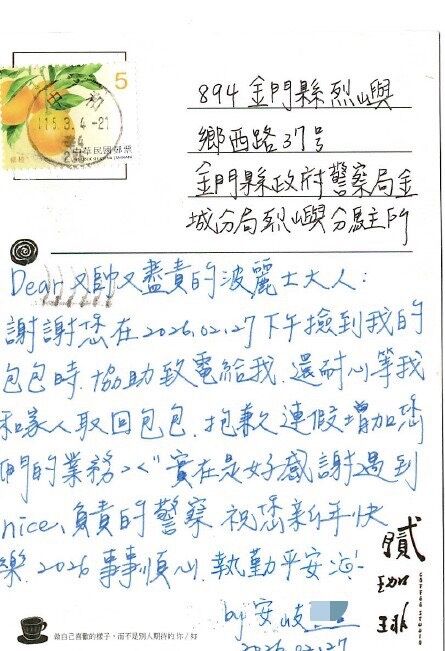 5
115.3.4.-21
中華民國郵票
894 金門縣烈嶼
鄉西路37号
金門縣政府警察局金
城分局烈嶼分駐所
Dear 又帥又盡責的波麗士大人:
謝謝您在2026.02.27下午撿到我的
包包時,協助致電給我,還耐心等我
和家人取回包包,抱歉連假增加您
們的業務>.<" 實在是好感謝遇到
nice、負責的警察 祝您新年快
樂,2026事事順心,執勤平安
by 安岐
2026.02.27
貳珈琲
COFFEE STUDIO
做自己喜歡的樣子,而不是別人期待的你/好